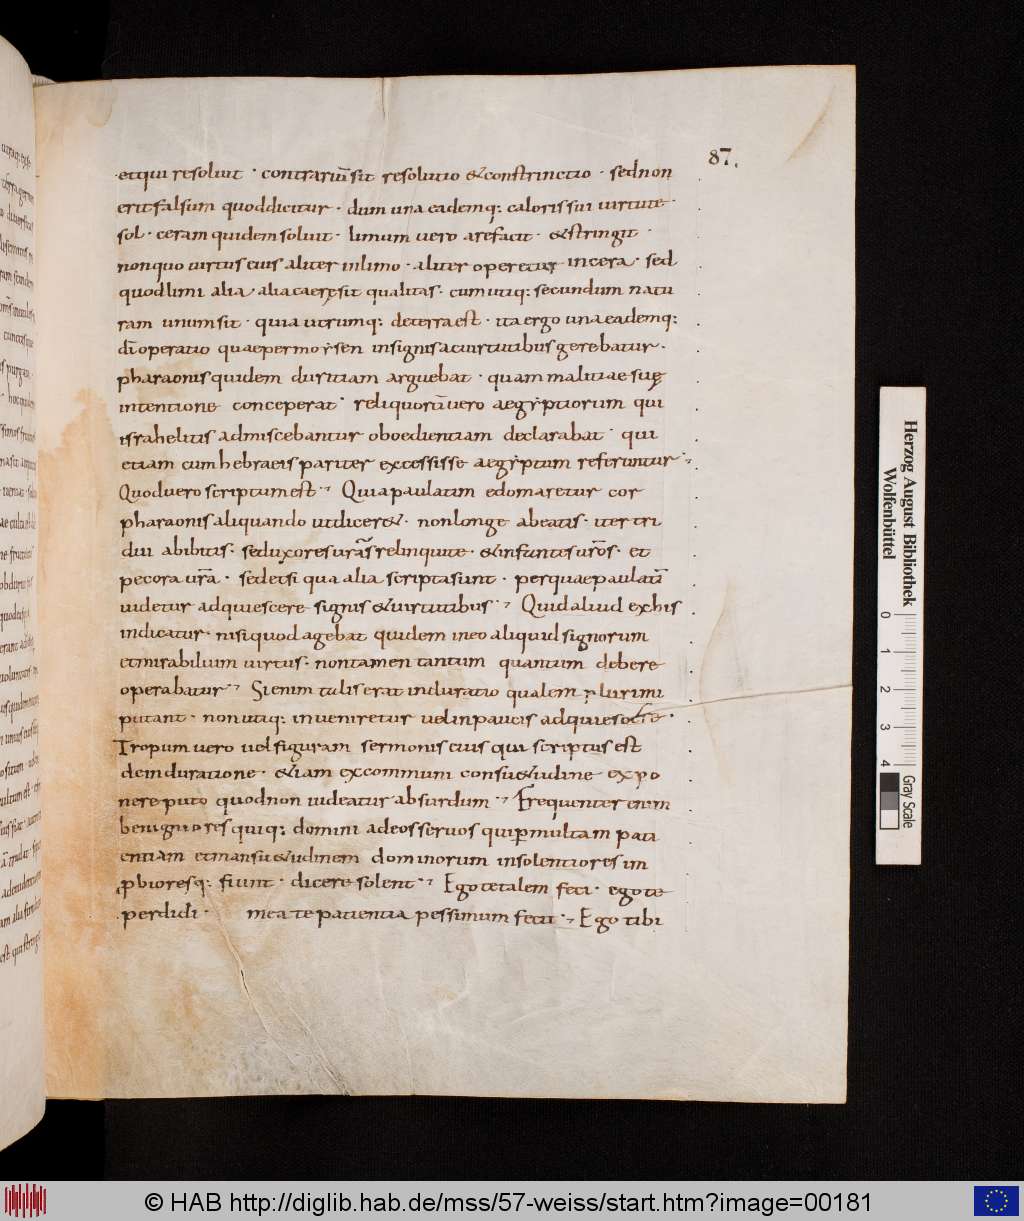 87.
et qui resoluit · contrariū sit resolutio & constrinctio · sed non
erit falsum quod dicitur · dum una eademq; caloris sui uirtute ·
sol · ceram quidem soluit · limum uero arefacit · & stringit ·
non quo uirtus eius aliter in limo · aliter operetur in cera · sed
quod limi alia · alia caerę sit qualitas · cum utiq; secundum natu
ram unum sit · quia utrumq; de terra est · ita ergo una eademq;
dī operatio quae per moẏsen in signis ac uirtutibus gerebatur ·
pharaonis quidem duritiam arguebat · quam malitiae suę
intentione conceperat · reliquorū uero aegẏptiorum qui
israhelitis admiscebantur oboedientiam declarabat · qui
etiam cum hebraeis pariter excessisse aegẏptum referuntur ·
Quod uero scriptum est · Quia paulatim edomaretur cor
pharaonis aliquando ut dicer& · non longe abeatis · iter tri
dui abibitis · sed uxores urās relinquite · & infantes urōs · et
pecora urā · sed etsi qua alia scripta sunt · per quae paulatī
uidetur adquiescere signis & uirtutibus · Quid aliud ex his
indicatur · nisi quod agebat quidem in eo aliquid signorum
et mirabilium uirtus · non tamen tantum quantum debere
operabatur · Si enim talis erat induratio qualem plurimi
putant · non utiq; inueniretur uel in paucis adquiescere ·
Tropum uero uel figuram sermonis eius qui scriptus est
de induratione · &iam ex communi consu&udine expo
nere puto quod non uideatur absurdum · Frequenter enim
benigniores quiq; domini ad eos seruos qui p multam pati
entiam et mansu&udinem dominorum insolentiores im
pbioresq; fiunt · dicere solent · Ego te talem feci · ego te
perdidi · mea te patientia pessimum fecit · Ego tibi
Herzog August Bibliothek
Wolfenbüttel
0 1 2 3 4
Gray Scale
© HAB http://diglib.hab.de/mss/57-weiss/start.htm?image=00181